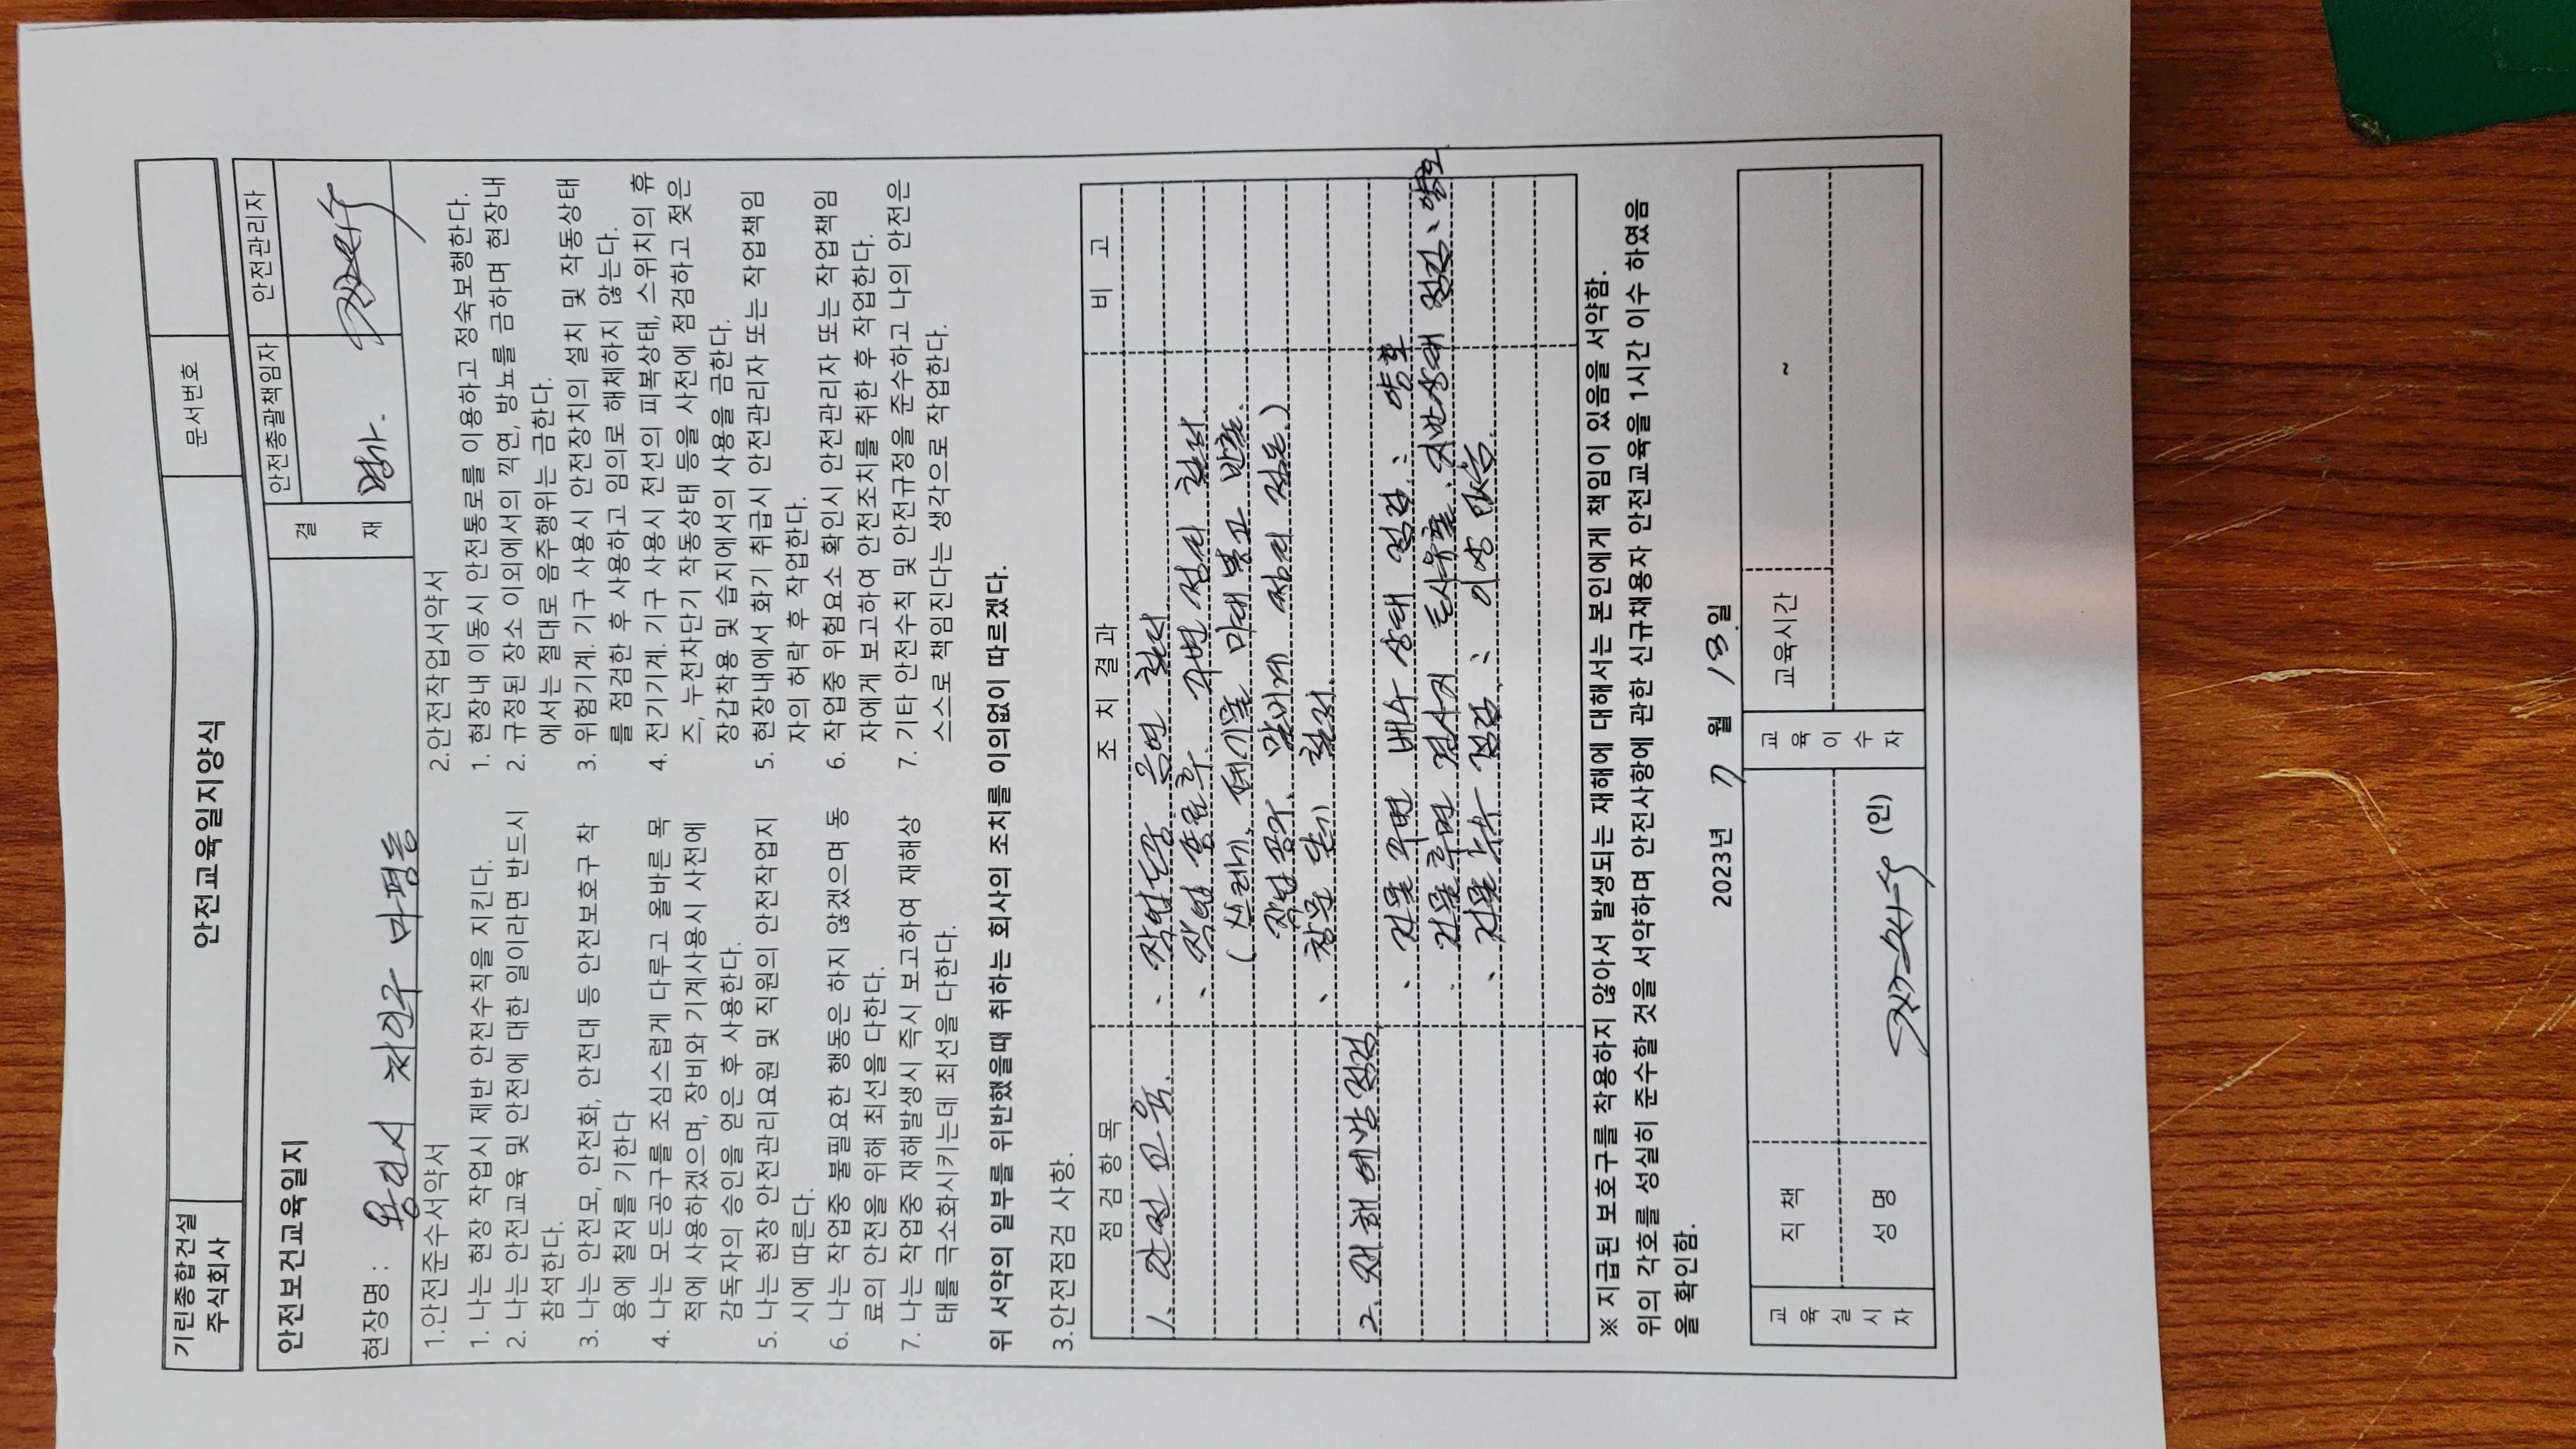 기린종합건설
주식회사
안전교육일지양식
문서번호
안전보건교육일지
결
재
안전총괄책임자
안전관리자
현장명 : 용인시 처인구 마평동
1.안전준수서약서
1. 나는 현장 작업시 제반 안전수칙을 지킨다.
2. 나는 안전교육 및 안전에 대한 일이라면 반드시
참석한다.
3. 나는 안전모, 안전화, 안전대 등 안전보호구 착
용에 철저를 기한다
4. 나는 모든공구를 조심스럽게 다루고 올바른 목
적에 사용하겠으며, 장비와 기계사용시 사전에
감독자의 승인을 얻은 후 사용한다.
5. 나는 현장 안전관리요원 및 직원의 안전작업지
시에 따른다.
6. 나는 작업중 불필요한 행동은 하지 않겠으며 동
료의 안전을 위해 최선을 다한다.
7. 나는 작업중 재해발생시 즉시 보고하여 재해상
태를 극소화시키는데 최선을 다한다.
2.안전작업서약서
1. 현장내 이동시 안전통로를 이용하고 정숙보행한다.
2. 규정된 장소 이외에서의 끽연, 방뇨를 금하며 현장내
에서는 절대로 음주행위는 금한다.
3. 위험기계. 기구 사용시 안전장치의 설치 및 작동상태
를 점검한 후 사용하고 임의로 해체하지 않는다.
4. 전기기계. 기구 사용시 전선의 피복상태, 스위치의 휴
즈, 누전차단기 작동상태 등을 사전에 점검하고 젖은
장갑착용 및 습지에서의 사용을 금한다.
5. 현장내에서 화기 취급시 안전관리자 또는 작업책임
자의 허락 후 작업한다.
6. 작업중 위험요소 확인시 안전관리자 또는 작업책임
자에게 보고하여 안전조치를 취한 후 작업한다.
7. 기타 안전수칙 및 안전규정을 준수하고 나의 안전은
스스로 책임진다는 생각으로 작업한다.
위 서약의 일부를 위반했을때 취하는 회사의 조치를 이의없이 따르겠다.
3.안전점검 사항.
점 검 항 목
조 치 결 과
비 고
1. 안전 교육.
· 작업도중 금연 철저.
· 작업 종료후. 주변 정리 철저.
( 쓰레기. 폐기물 마대 넣고 반출.
작업 공구. 말비계 정리 정돈.)
· 창문 닫기 철저.
2. 재해 예방 점검
· 건물 주변 배수 상태 점검 : 양호
· 건물 후면 경사지 토사유출. 지반상태 점검 : 양호
· 건물 누수 점검 : 이상 없음.
※ 지급된 보호구를 착용하지 않아서 발생되는 재해에 대해서는 본인에게 책임이 있음을 서약함.
위의 각호를 성실히 준수할 것을 서약하며 안전사항에 관한 신규채용자 안전교육을 1시간 이수 하였음
을 확인함.
2023년 7 월 13 일
교육실시자
직 책
성 명
(인)
교육이수자
교육시간
~